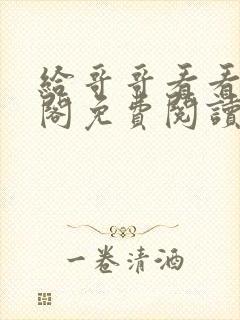 給哥哥看看
閣免費閱讀
一卷清酒